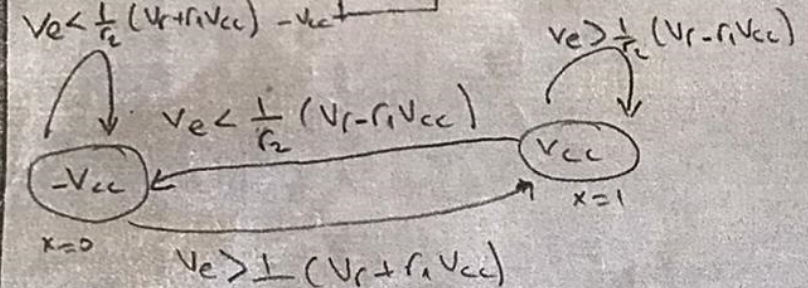 Ve < 1/r2 (Vr+r1Vcc) -Vcc
Ve > 1/r2 (Vr-r1Vcc)
Ve < 1/r2 (Vr-r1Vcc)
-Vcc
Vcc
x=0
x=1
Ve > 1 (Vr+r1Vcc)